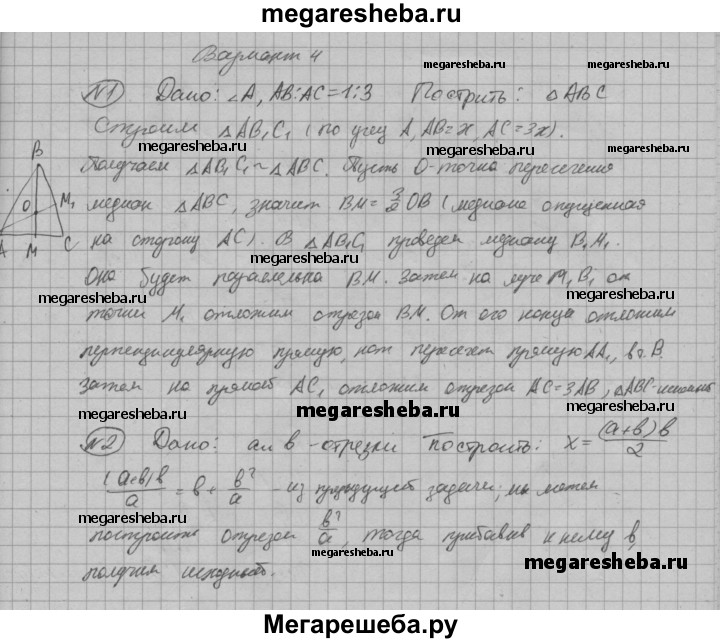 megaresheba.ru
Вариант 4
megaresheba.ru
№1 Дано: ∠A, AB:AC=1:3 Построить: △ABC
megaresheba.ru
Строим △AB₁C₁ (по углу A, AB=x, AC=3x).
megaresheba.ru
B
Получаем △AB₁C₁~△ABC. Пусть O-точка пересечения
megaresheba.ru
O M₁ медиан △ABC, значит BM=3/2 OB (медиана опущенная
A M C на сторону AC). В △AB₁C₁ проведем медиану B₁M₁.
megaresheba.ru
Она будет параллельна BM. Затем на луче M₁B₁ от
megaresheba.ru
megaresheba.ru
точки M₁ отложим отрезок BM. От его конца отложим
перпендикулярную прямую, кот пересечет прямую AA₁, в т. B.
megaresheba.ru
Затем на прямой AC₁ отложим отрезок AC=3AB, △ABC-искомый
megaresheba.ru
megaresheba.ru
№2 Дано: a и b -отрезки Построить: x=(a+b)b/2
megaresheba.ru
(a+b)b/a = b + b²/a - из предыдущей задачи, мы можем
megaresheba.ru
построить отрезок b²/a, тогда прибавив к нему b,
megaresheba.ru
megaresheba.ru
получим искомый.
Мегарешеба.ру